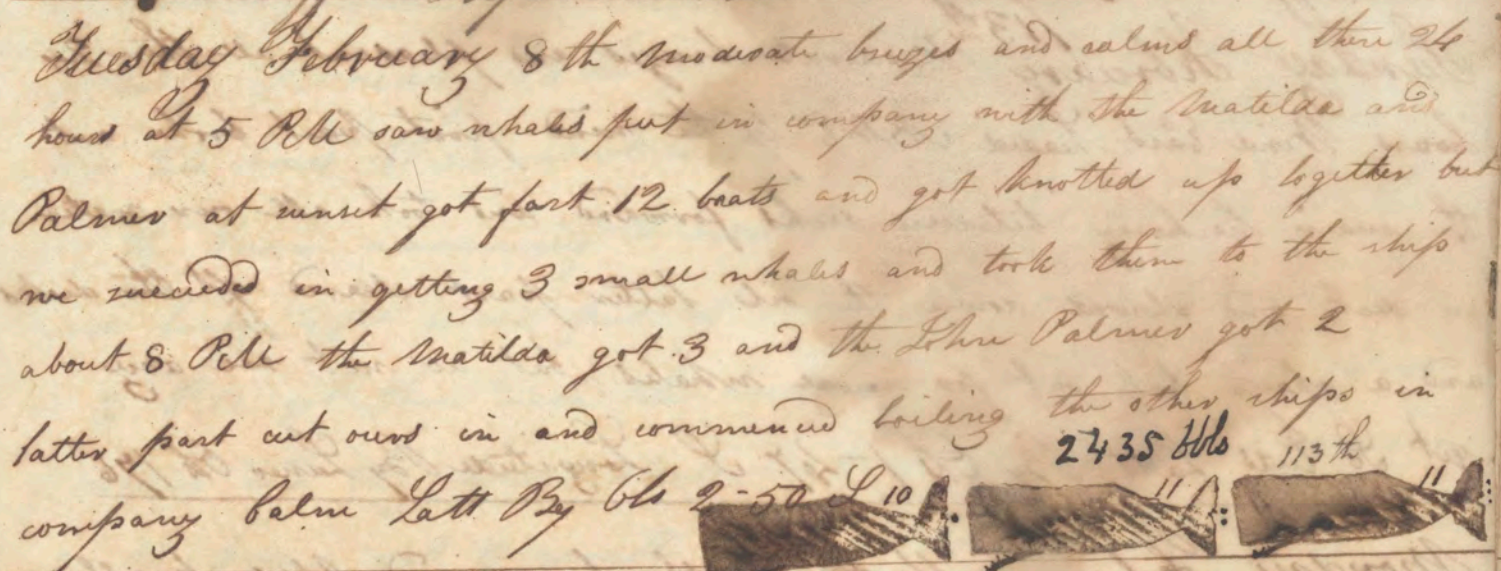 Tuesday February 8th moderate breezes and calms all these 24
hours at 5 PM saw whales put in company with the Matilda and
Palmer at sunset got fast 12 boats and got knotted up together but
we succeeded in getting 3 small whales and took them to the ship
about 8 PM the Matilda got 3 and the John Palmer got 2
latter part cut ours in and commenced boiling the other ships in
2435 bbls 113th
company calm Latt By Obs 2-50 S 10 11 11